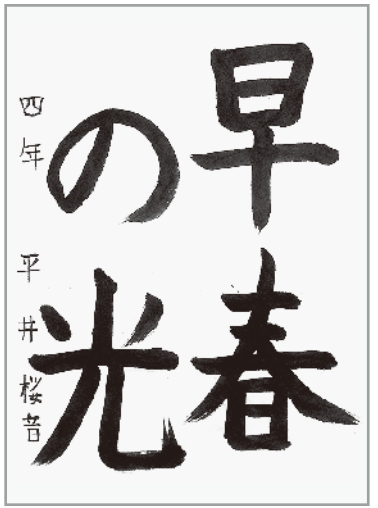 早春
の光
四年 平井桜音